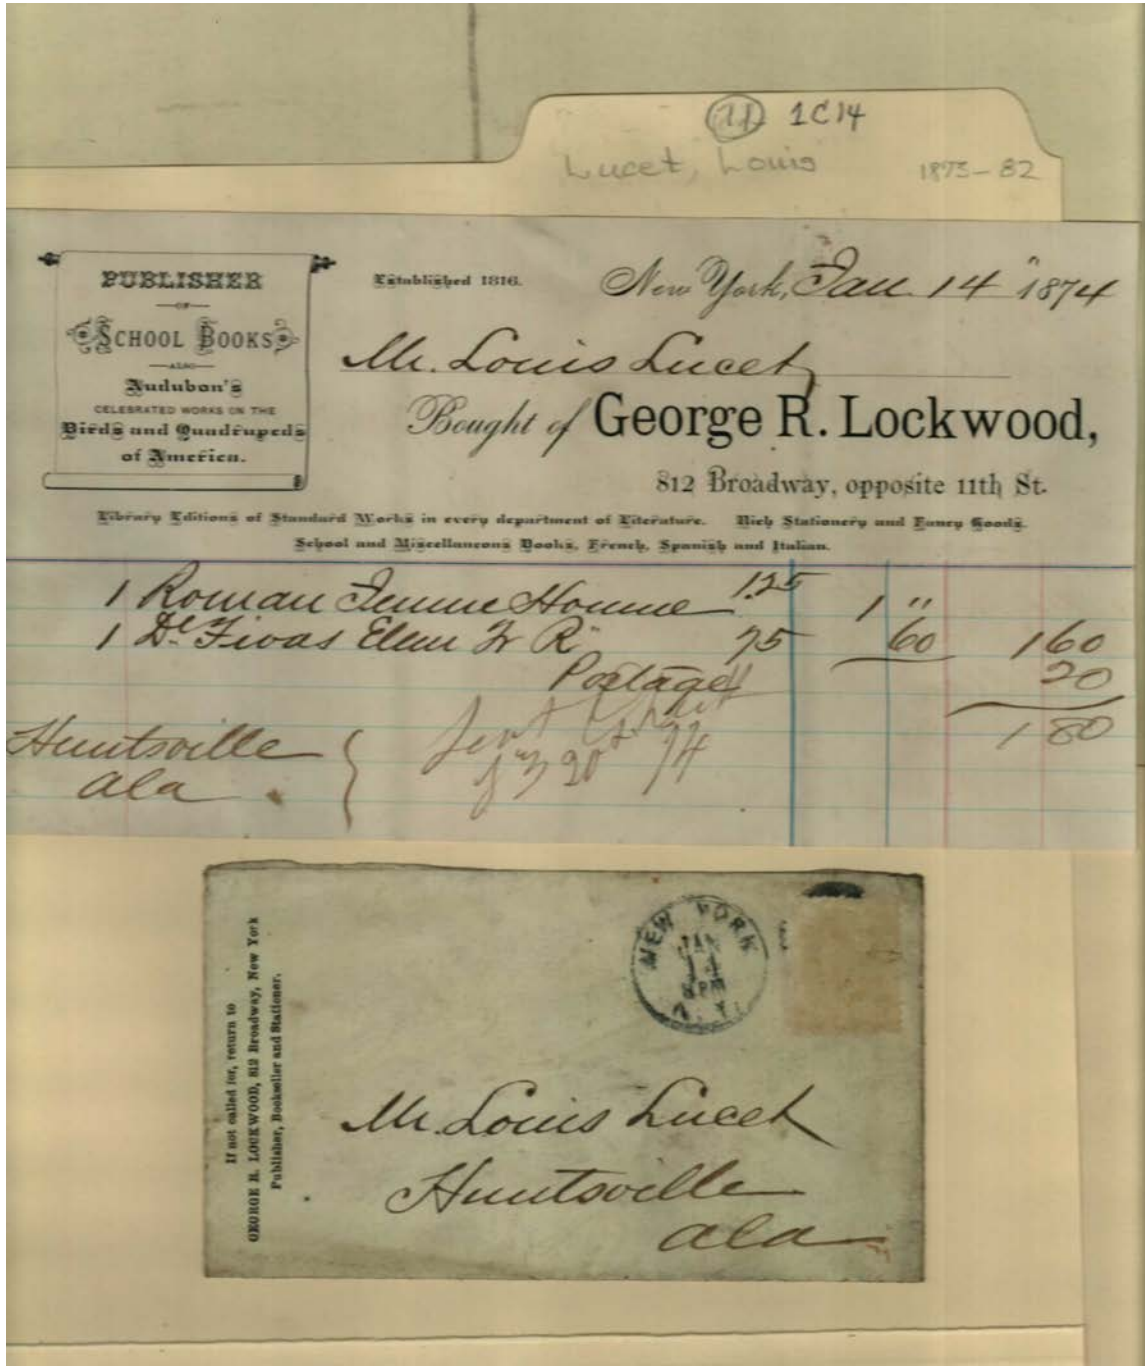 11 1C14
Lucet, Louis 1873-82
PUBLISHER
OF
SCHOOL BOOKS
ALSO
Audubon's
CELEBRATED WORKS ON THE
Birds and Quadrupeds
of America.
Established 1816.
New York, Jan. 14" 1874
Mr. Louis Lucet
Bought of George R. Lockwood,
812 Broadway, opposite 11th St.
Library Editions of Standard Works in every department of Literature. Rich Stationery and Fancy Goods.
School and Miscellaneous Books, French, Spanish and Italian.
1 Roman Femme Homme 1.25 1 "
1 De Fivas Elem Fr R 75 60 1 60
Postage 20
1 80
Huntsville
Ala
20 74
If not called for, return to
GEORGE R. LOCKWOOD, 812 Broadway, New York
Publisher, Bookseller and Stationer.
NEW YORK
JAN
N.Y.
Mr. Louis Lucet
Huntsville
Ala